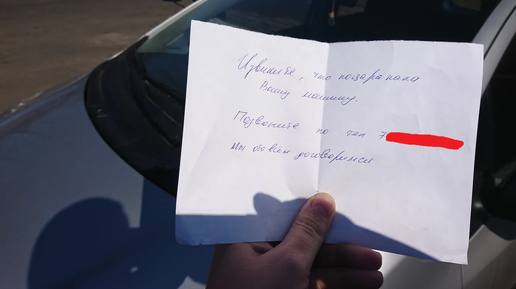 Извините, что поцарапала
Вашу машину.
Позвоните по тел 7
Мы обо всём договоримся